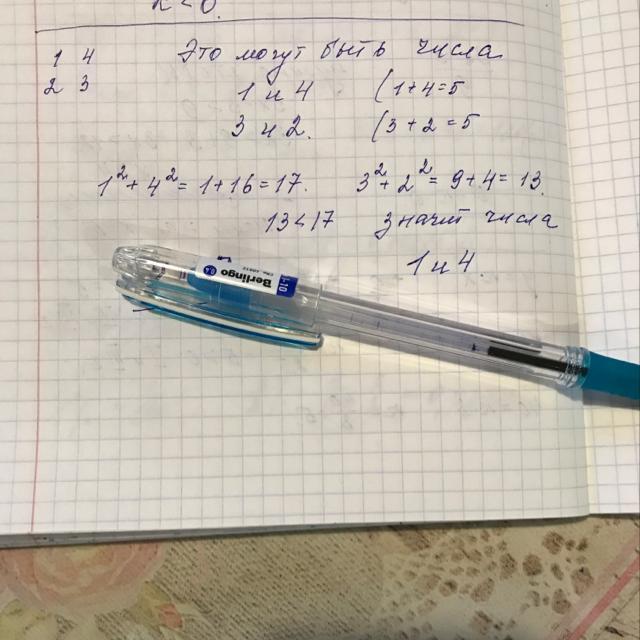 к < 0.
1 4 Это могут быть числа
2 3 1 и 4 (1+4=5
3 и 2. (3+2=5
1²+4²=1+16=17. 3²+2²=9+4=13.
13<17 значит числа
1 и 4.
Berlingo